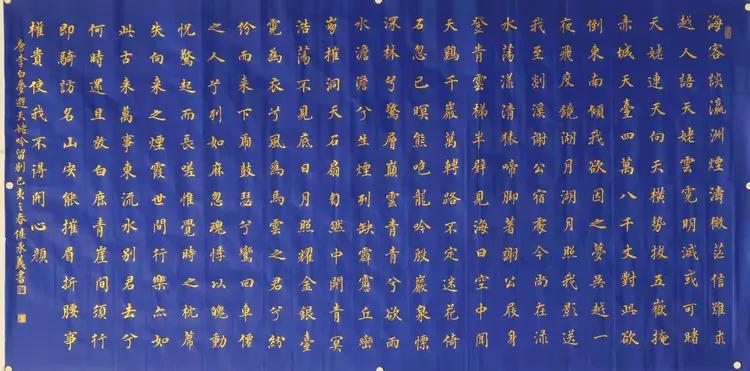 海客談瀛洲煙濤微茫信難求
越人語天姥雲霓明滅或可睹
天姥連天向天橫勢拔五嶽掩
赤城天臺四萬八千丈對此欲
倒東南傾我欲因之夢吳越一
夜飛度鏡湖月湖月照我影送
我至剡溪謝公宿處今尚在淥
水蕩漾清猿啼脚著謝公屐身
登青雲梯半壁見海日空中聞
天鷄千巖萬轉路不定迷花倚
石忽已暝熊咆龍吟殷巖泉慄
深林兮驚層巔雲青青兮欲雨
水澹澹兮生煙列缺霹靂丘巒
崩摧洞天石扇訇然中開青冥
浩蕩不見底日月照耀金銀臺
霓爲衣兮風爲馬雲之君兮紛
紛而来下虎鼓瑟兮鸞回車僊
之人兮列如麻忽魂悸以魄動
怳驚起而長嗟惟覺時之枕蓆
失向来之煙霞世間行樂亦如
此古来萬事東流水別君去兮
何時還且放白鹿青崖間須行
即騎訪名山安能摧眉折腰事
權貴使我不得開心顏
唐李白夢遊天姥吟留別己亥之春侯承義書